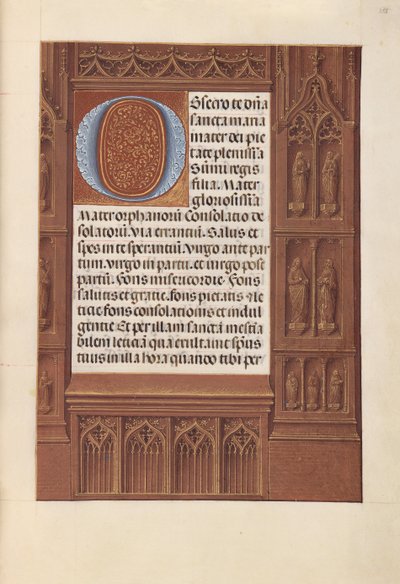 Obsecro te dn̄a
sancta maria
mater dei pie
tate plenissīa
Sūmi regis
filia. Mater
gloriosissīa
Mater orphanorū Consolatio de
solatorū. Via errantiū. Salus et
spes in te sperantiū. Virgo ante par
tum. virgo in partu. et virgo post
partū. Fons misericordie. Fons
salutis et gratie. fons pietatis et le
ticie fons consolationis et indul
gentie Et per illam sanctā inesti͞a
bilem leticiā qua exultauit sp̄us
tuus in illa hora quando tibi per